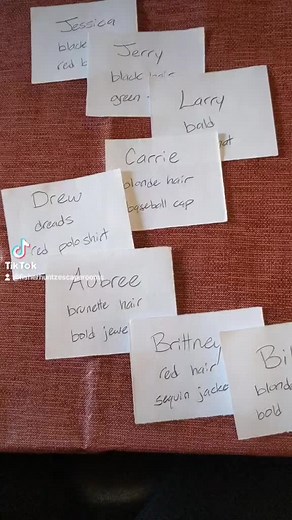 Jessica
black
red b
Jerry
black hair
green
Larry
bald
Carrie
blonde hair
baseball cap
Drew
dreads
red polo shirt
TikTok
Aubree
brunette hair
bold jewe
Brittney
red hair
sequin jacke
Bil
blonde
bold